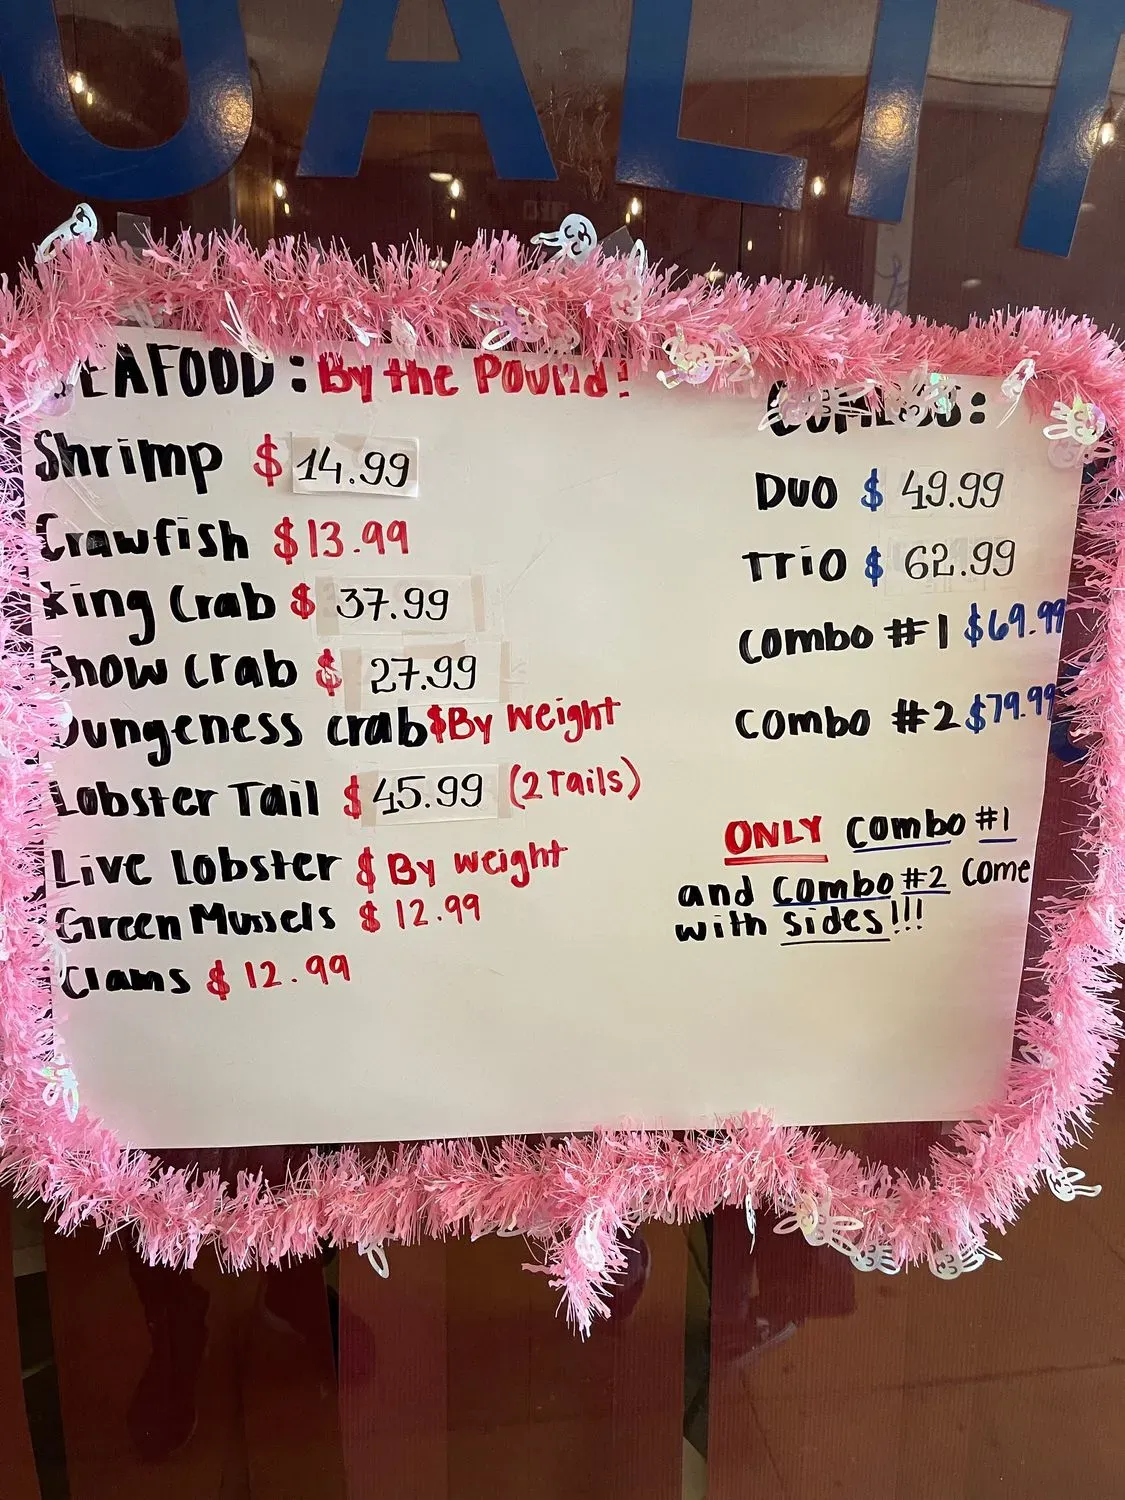 UALIT
SEAFOOD: By the Pound!
Shrimp $ 14.99
Crawfish $13.99
King Crab $ 37.99
Snow Crab $ 27.99
Dungeness crab $By Weight
Lobster Tail $ 45.99 (2 Tails)
Live lobster $ By weight
Green Mussels $ 12.99
Clams $ 12.99
COMBOS:
DUO $ 49.99
Trio $ 62.99
Combo #1 $69.99
Combo #2 $79.99
ONLY Combo #1
and Combo #2 Come
with Sides!!!